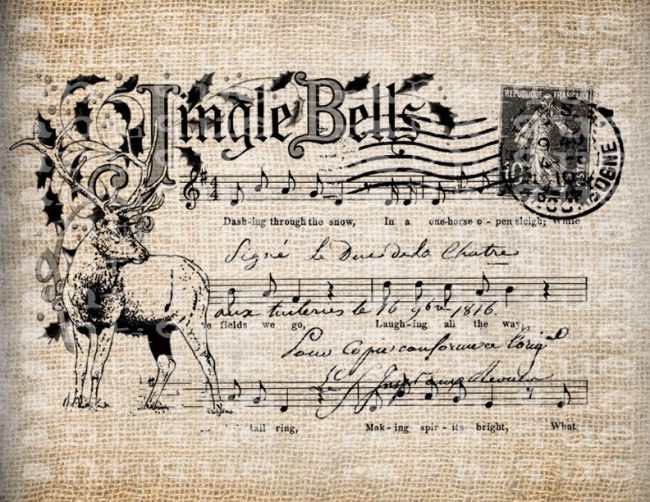 Jingle Bells
REPUBLIQUE FRANÇAISE
BOURBOGNE
Dash-ing through the snow, In a one-horse o-pen sleigh; While
Signé Le Duc de la Chatre
aux tuileries le 16 9bre 1816.
e fields we go, Laugh-ing all the way;
Pour Copie conforme a l'origi
tail ring, Mak-ing spir-its bright, What